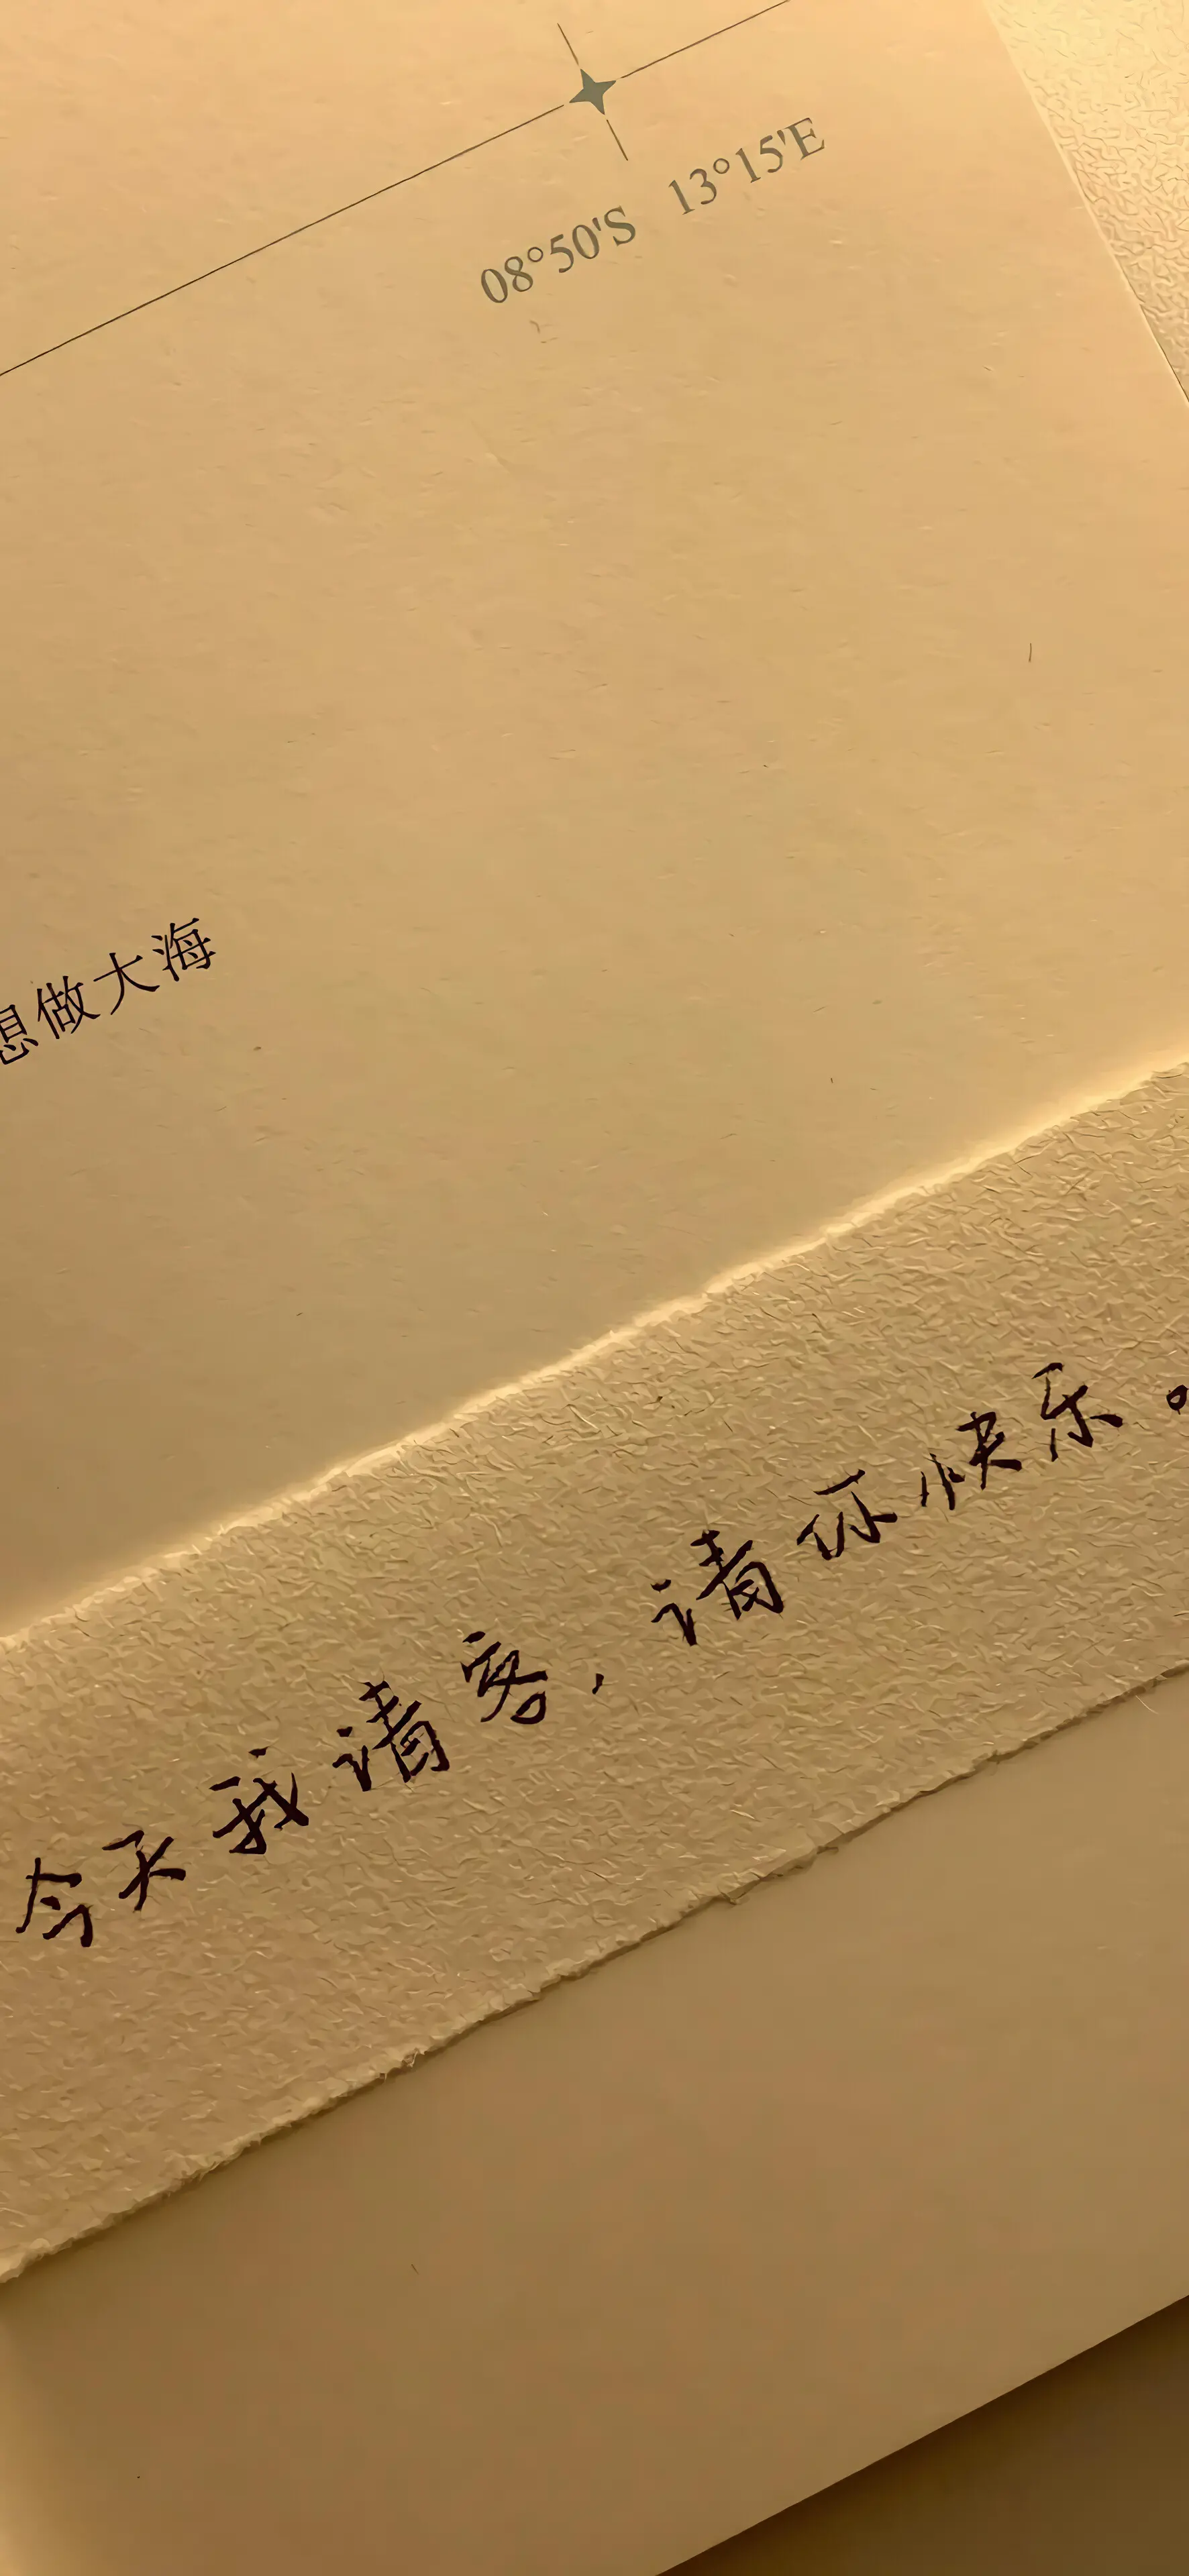 08°50'S 13°15'E
想做大海
今天我请客，请你快乐。